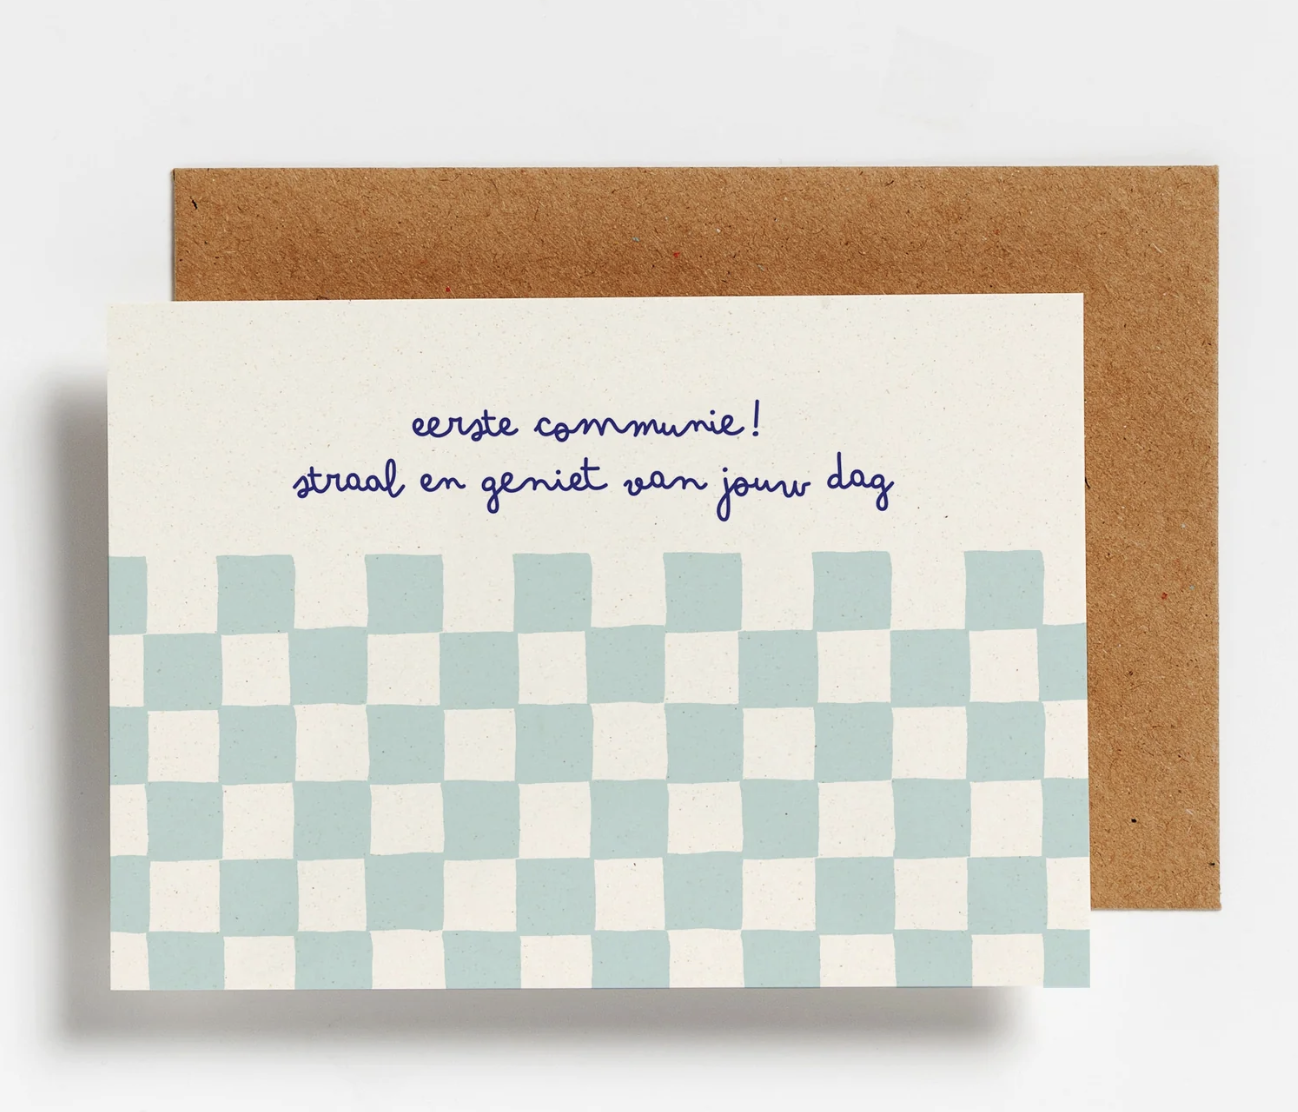 eerste communie!
straal en geniet van jouw dag